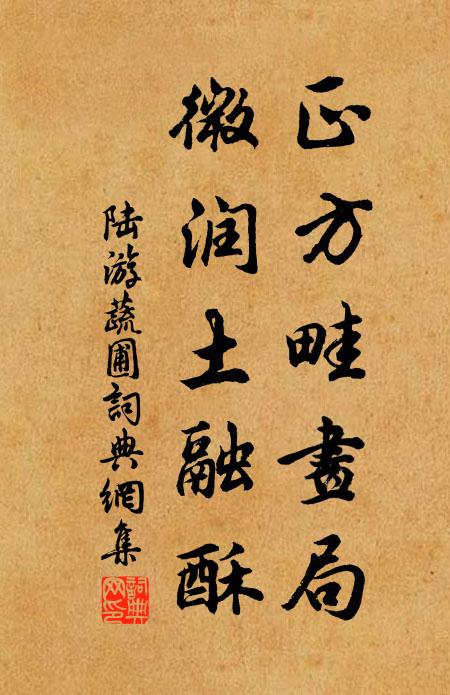 正方畦畫局
微润土融酥
陆游蔬圃詞典網集
詞典网印